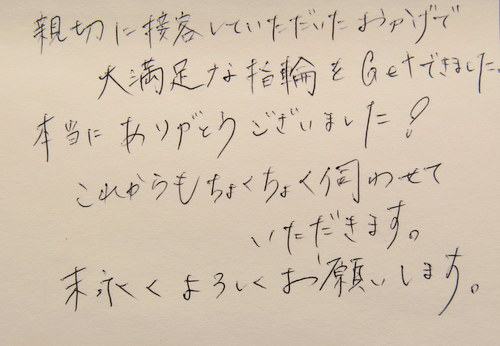 親切に接客していただいたおかげで
大満足な指輪をGetできました。
本当にありがとうございました!
これからもちょくちょく伺わせて
いただきます。
末永くよろしくお願いします。